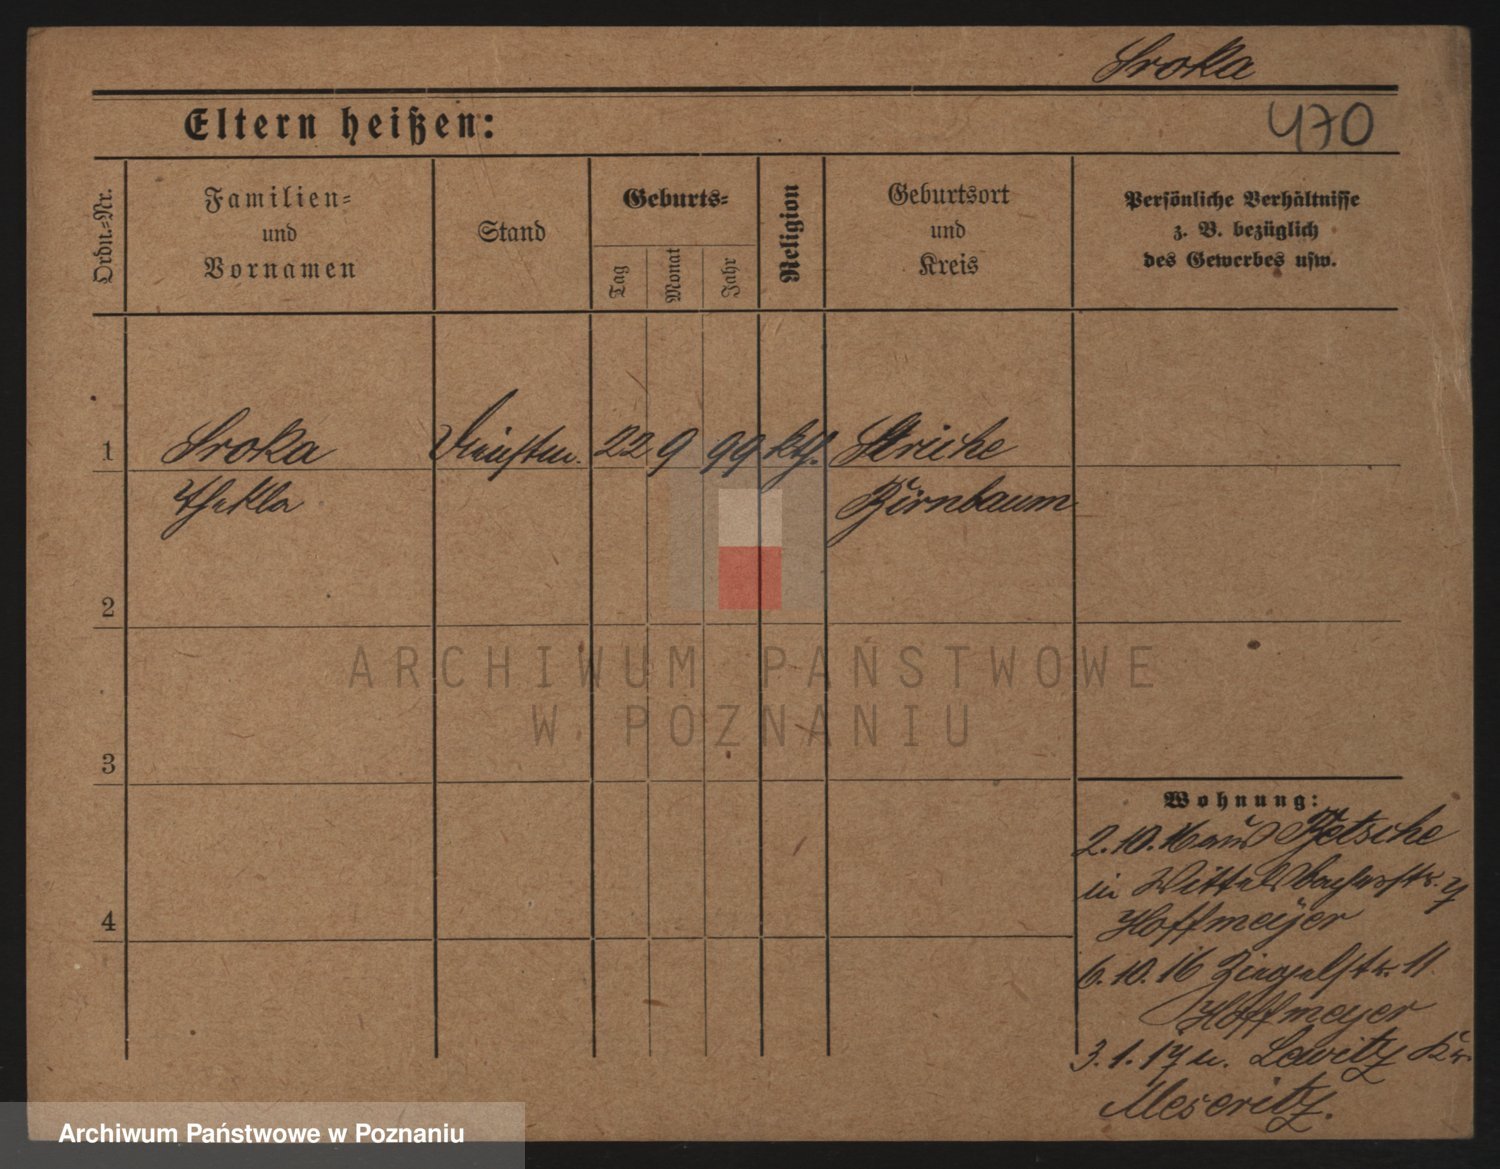 Sroka
Eltern heißen:
470
Ordn.-Nr.
Familien-
und
Vornamen
Stand
Geburts-
Tag
Monat
Jahr
Religion
Geburtsort
und
Kreis
Persönliche Verhältnisse
z. B. bezüglich
des Gewerbes usw.
1 Sroka 22 9 99 kth. Striche
Thekla Birnbaum
2
ARCHIWUM PAŃSTWOWE
W POZNANIU
3
Wohnung:
2.10.16 aus Betsche
in Wittelsbacherstr. 7
4
Hoffmeyer
6.10.16 Ziegelstr. 11
Hoffmeyer
3.1.17 n. Lewitz Kr.
Meseritz.
Archiwum Państwowe w Poznaniu